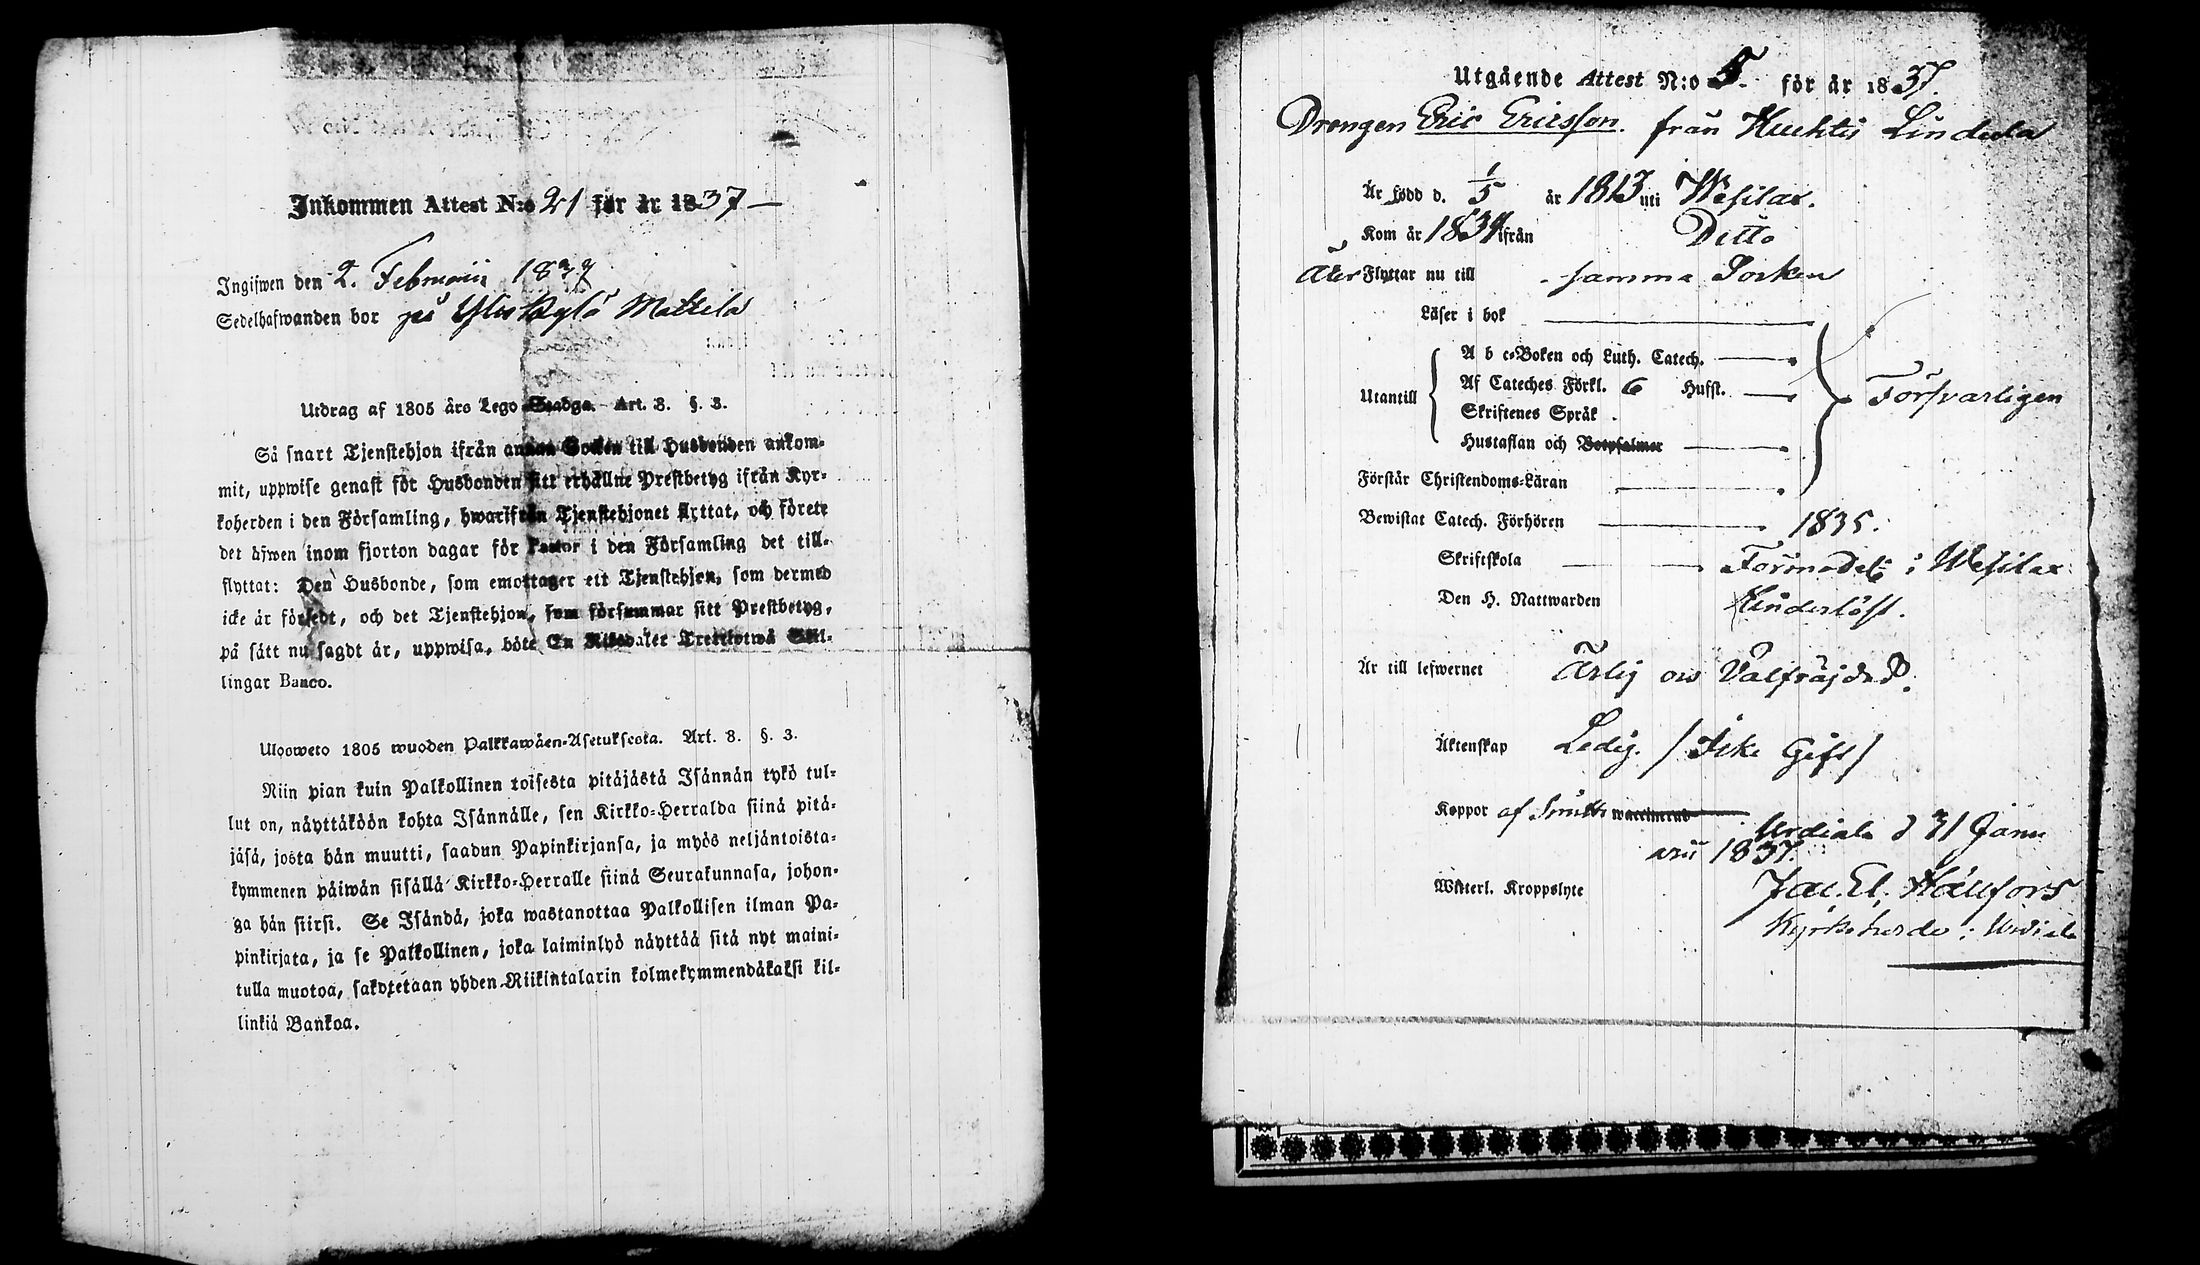 Inkommen Attest N:o 21 för år 1837
Ingifwen den 2. Februarii 1837
Sedelhafwanden bor på Yliskylä Mattila
Utdrag af 1805 års Lego-Stadga. Art. 8. §. 3.
Så snart Tjenstehjon ifrån annan Socken till Husbonden ankom-
mit, uppwise genast för Husbonden sitt erhållne Prestbetyg ifrån Kyr-
koherden i den Församling, hwarifrån Tjenstehjonet flyttat, och förete
det äfwen inom fjorton dagar för Pastor i den Församling det till-
flyttat: Den Husbonde, som emottager ett Tjenstehjon, som dermed
icke är försedt, och det Tjenstehjon, som försummar sitt Prestbetyg,
på sätt nu sagdt är, uppwisa, böte En Riksdaler Trettiotwå Skil-
lingar Banco.
Ulosweto 1805 wuoden Palkkawäen-Asetuksesta. Art. 8. §. 3.
Niin pian kuin Palkollinen toisesta pitäjästä Isännän tykö tul-
lut on, näyttäköön kohta Isännälle, sen Kirkko-Herralda siinä pitä-
jäsä, josta hän muutti, saadun Papinkirjansa, ja myös neljäntoista-
kymmenen päiwän sisällä Kirkko-Herralle siinä Seurakunnasa, johon-
ga hän siirsi. Se Isändä, joka wastanottaa Palkollisen ilman Pa-
pinkirjata, ja se Palkollinen, joka laiminlyö näyttää sitä nyt maini-
tulla muotoa, sakotetaan yhden Riikintalarin kolmekymmendäkaksi kil-
linkiä Bankoa.
Utgående Attest N:o 5. för år 1837.
Drengen Eric Ericsson. från Huhtis Lindula
Är född d. 1/5 år 1813 uti Wesilax.
Kom år 1834 ifrån Ditto
Åter Flyttar nu till samma Socken
Läser i bok
A b c-Boken och Luth. Catech.
Utantill Af Cateches Förkl. 6 Hufst. Försvarligen
Skriftenes Språk
Hustaflan och Botpsalmer
Förstår Christendoms-Läran
Bewistat Catech. Förhören 1835.
Skriftskola Förmodel. i Wesilax
Den H. Nattwarden Hinderlöst.
Är till lefwernet Ärlig och Välfräjdad.
Äktenskap Ledig. / Icke Gift /
Koppor af Smitta waccinerad
Urdiala d 31 Janu
arii 1837.
Witterl. Kroppslyte Jac. El. Hällfors
Kyrkoherde i Urdiala